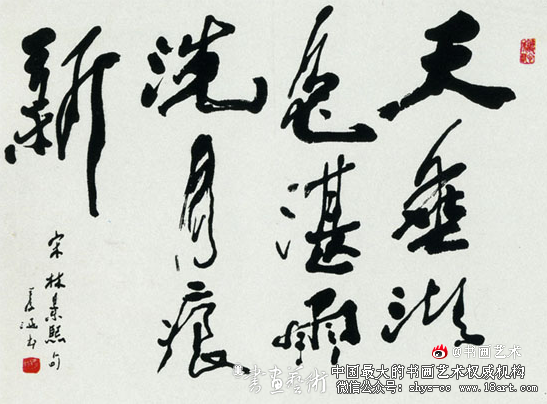 天垂湖
色湛雨
洗月痕
新
宋林景熙句
@书画艺术
書畫藝術
中国最大的书画艺术权威机构
微信公众号: shys-cc www.18art.com